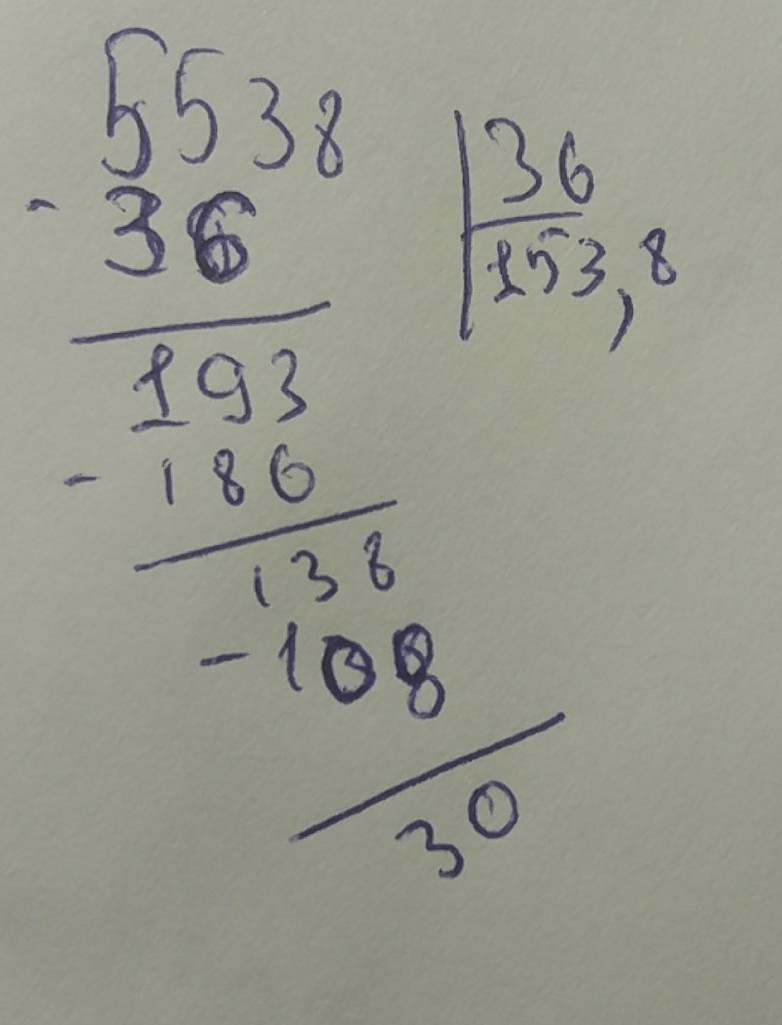 5538
36
- 36
153,8
193
- 180
138
- 108
30